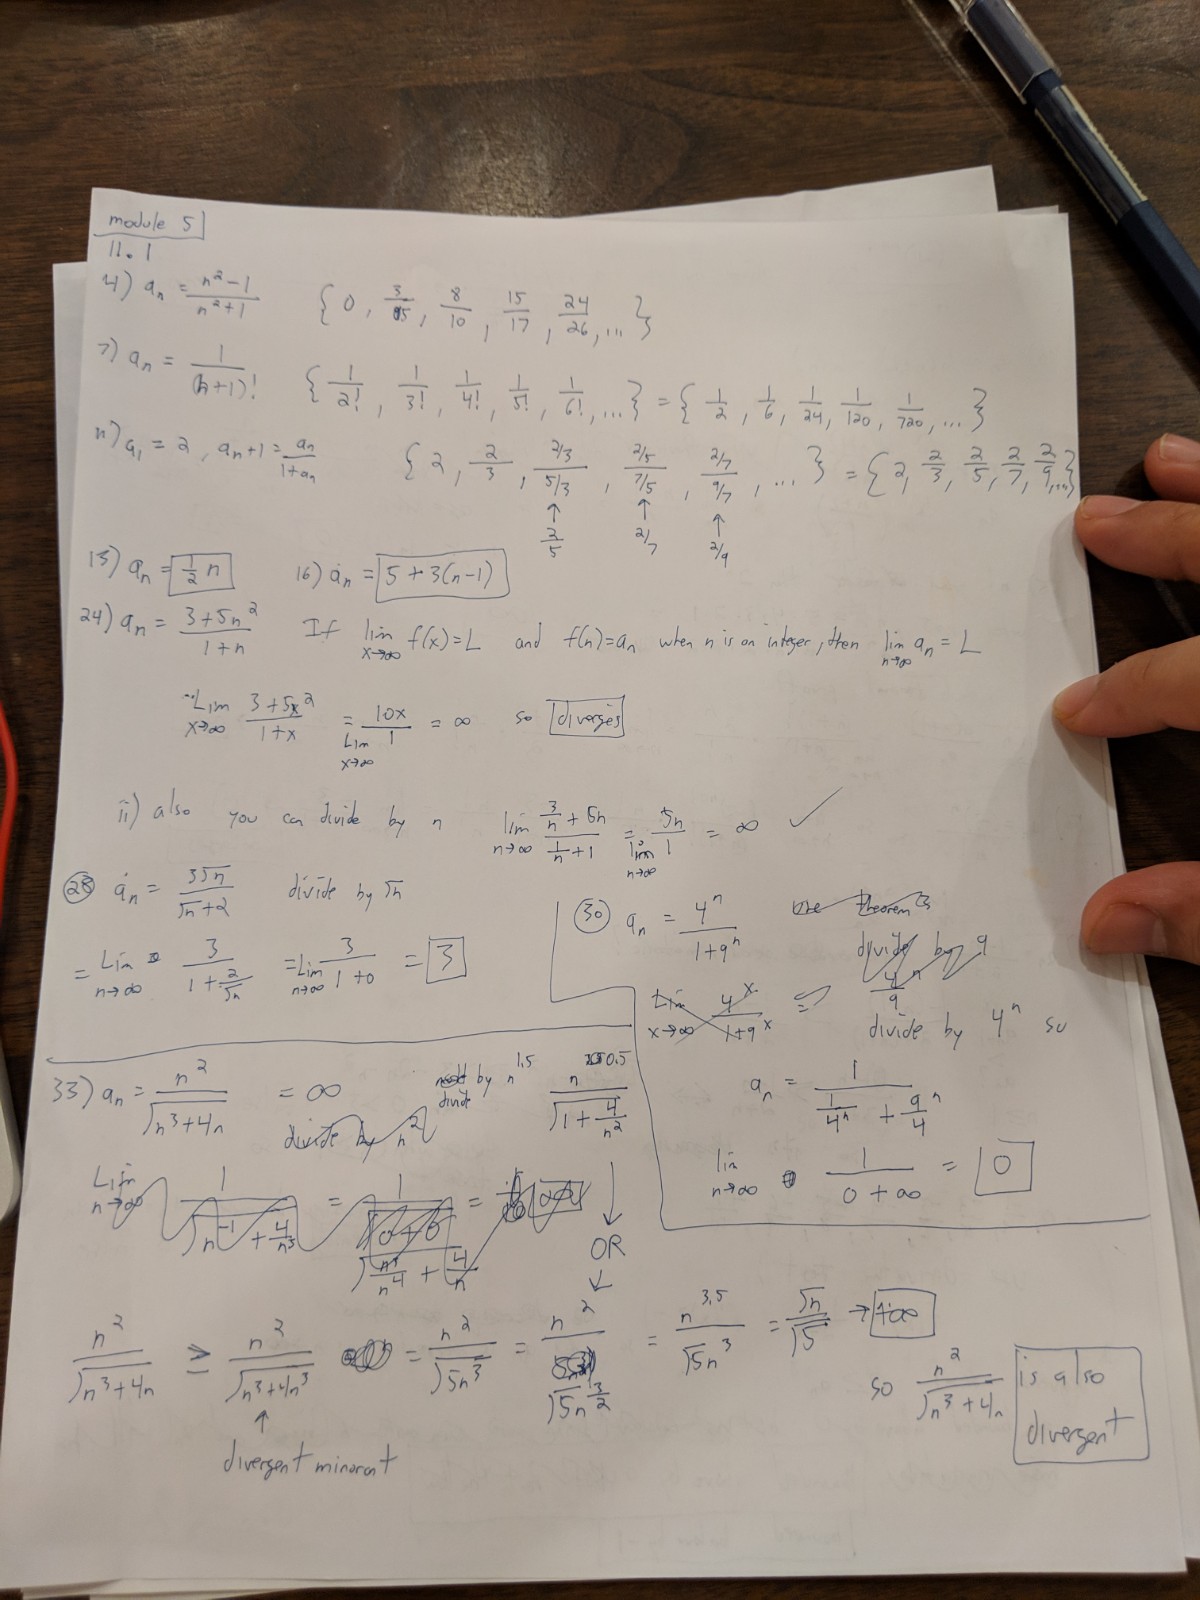 module 5
11.1
4) aₙ = (n²-1)/(n²+1) { 0, 3/5, 8/10, 15/17, 24/26, ... }
7) aₙ = 1/(n+1)! { 1/2!, 1/3!, 1/4!, 1/5!, 1/6!, ... } = { 1/2, 1/6, 1/24, 1/120, 1/720, ... }
11) a₁ = 2, aₙ+1 = aₙ/(1+aₙ) { 2, 2/3, (2/3)/(5/3), (2/5)/(7/5), (2/7)/(9/7), ... } = { 2, 2/3, 2/5, 2/7, 2/9, ... }
↑ ↑ ↑
2/5 2/7 2/9
13) aₙ = 1/2 n 16) aₙ = 5+3(n-1)
24) aₙ = (3+5n²)/(1+n) If lim x→∞ f(x)=L and f(n)=aₙ when n is an integer, then lim n→∞ aₙ = L
Lim x→∞ (3+5x²)/(1+x) = Lim x→∞ 10x/1 = ∞ so diverges
ii) also you can divide by n lim n→∞ (3/n + 5n)/(1/n + 1) = lim n→∞ 5n/1 = ∞ ✓
28 aₙ = 3√n/(√n+2) divide by √n
= Lim n→∞ 3/(1+2/√n) = Lim n→∞ 3/(1+0) = 3
30 aₙ = 4ⁿ/(1+9ⁿ) use theorem 3
divide by 9
4/9 ⁿ
Lim x→∞ 4ˣ/(1+9ˣ) =
divide by 4ⁿ so
aₙ = 1/(1/4ⁿ + 9/4 ⁿ)
lim n→∞ 1/(0+∞) = 0
33) aₙ = n²/√(n³+4n) = ∞ divide by n^1.5 n^0.5/√(1+4/n²)
divide by n²
Lim n→∞ 1/√(n⁻¹+4/n³) = 1/√(0+0) =
√(n³/n⁴ + 4/n)
↓
OR
↓
n²/√(n³+4n) ≥ n²/√(n³+4n³) = n²/√(5n³) = n²/(√5n^(3/2)) = n^3.5/(√5n³) = √n/√5 → +∞
↑
divergent minorant
so n²/√(n³+4n) is also
divergent